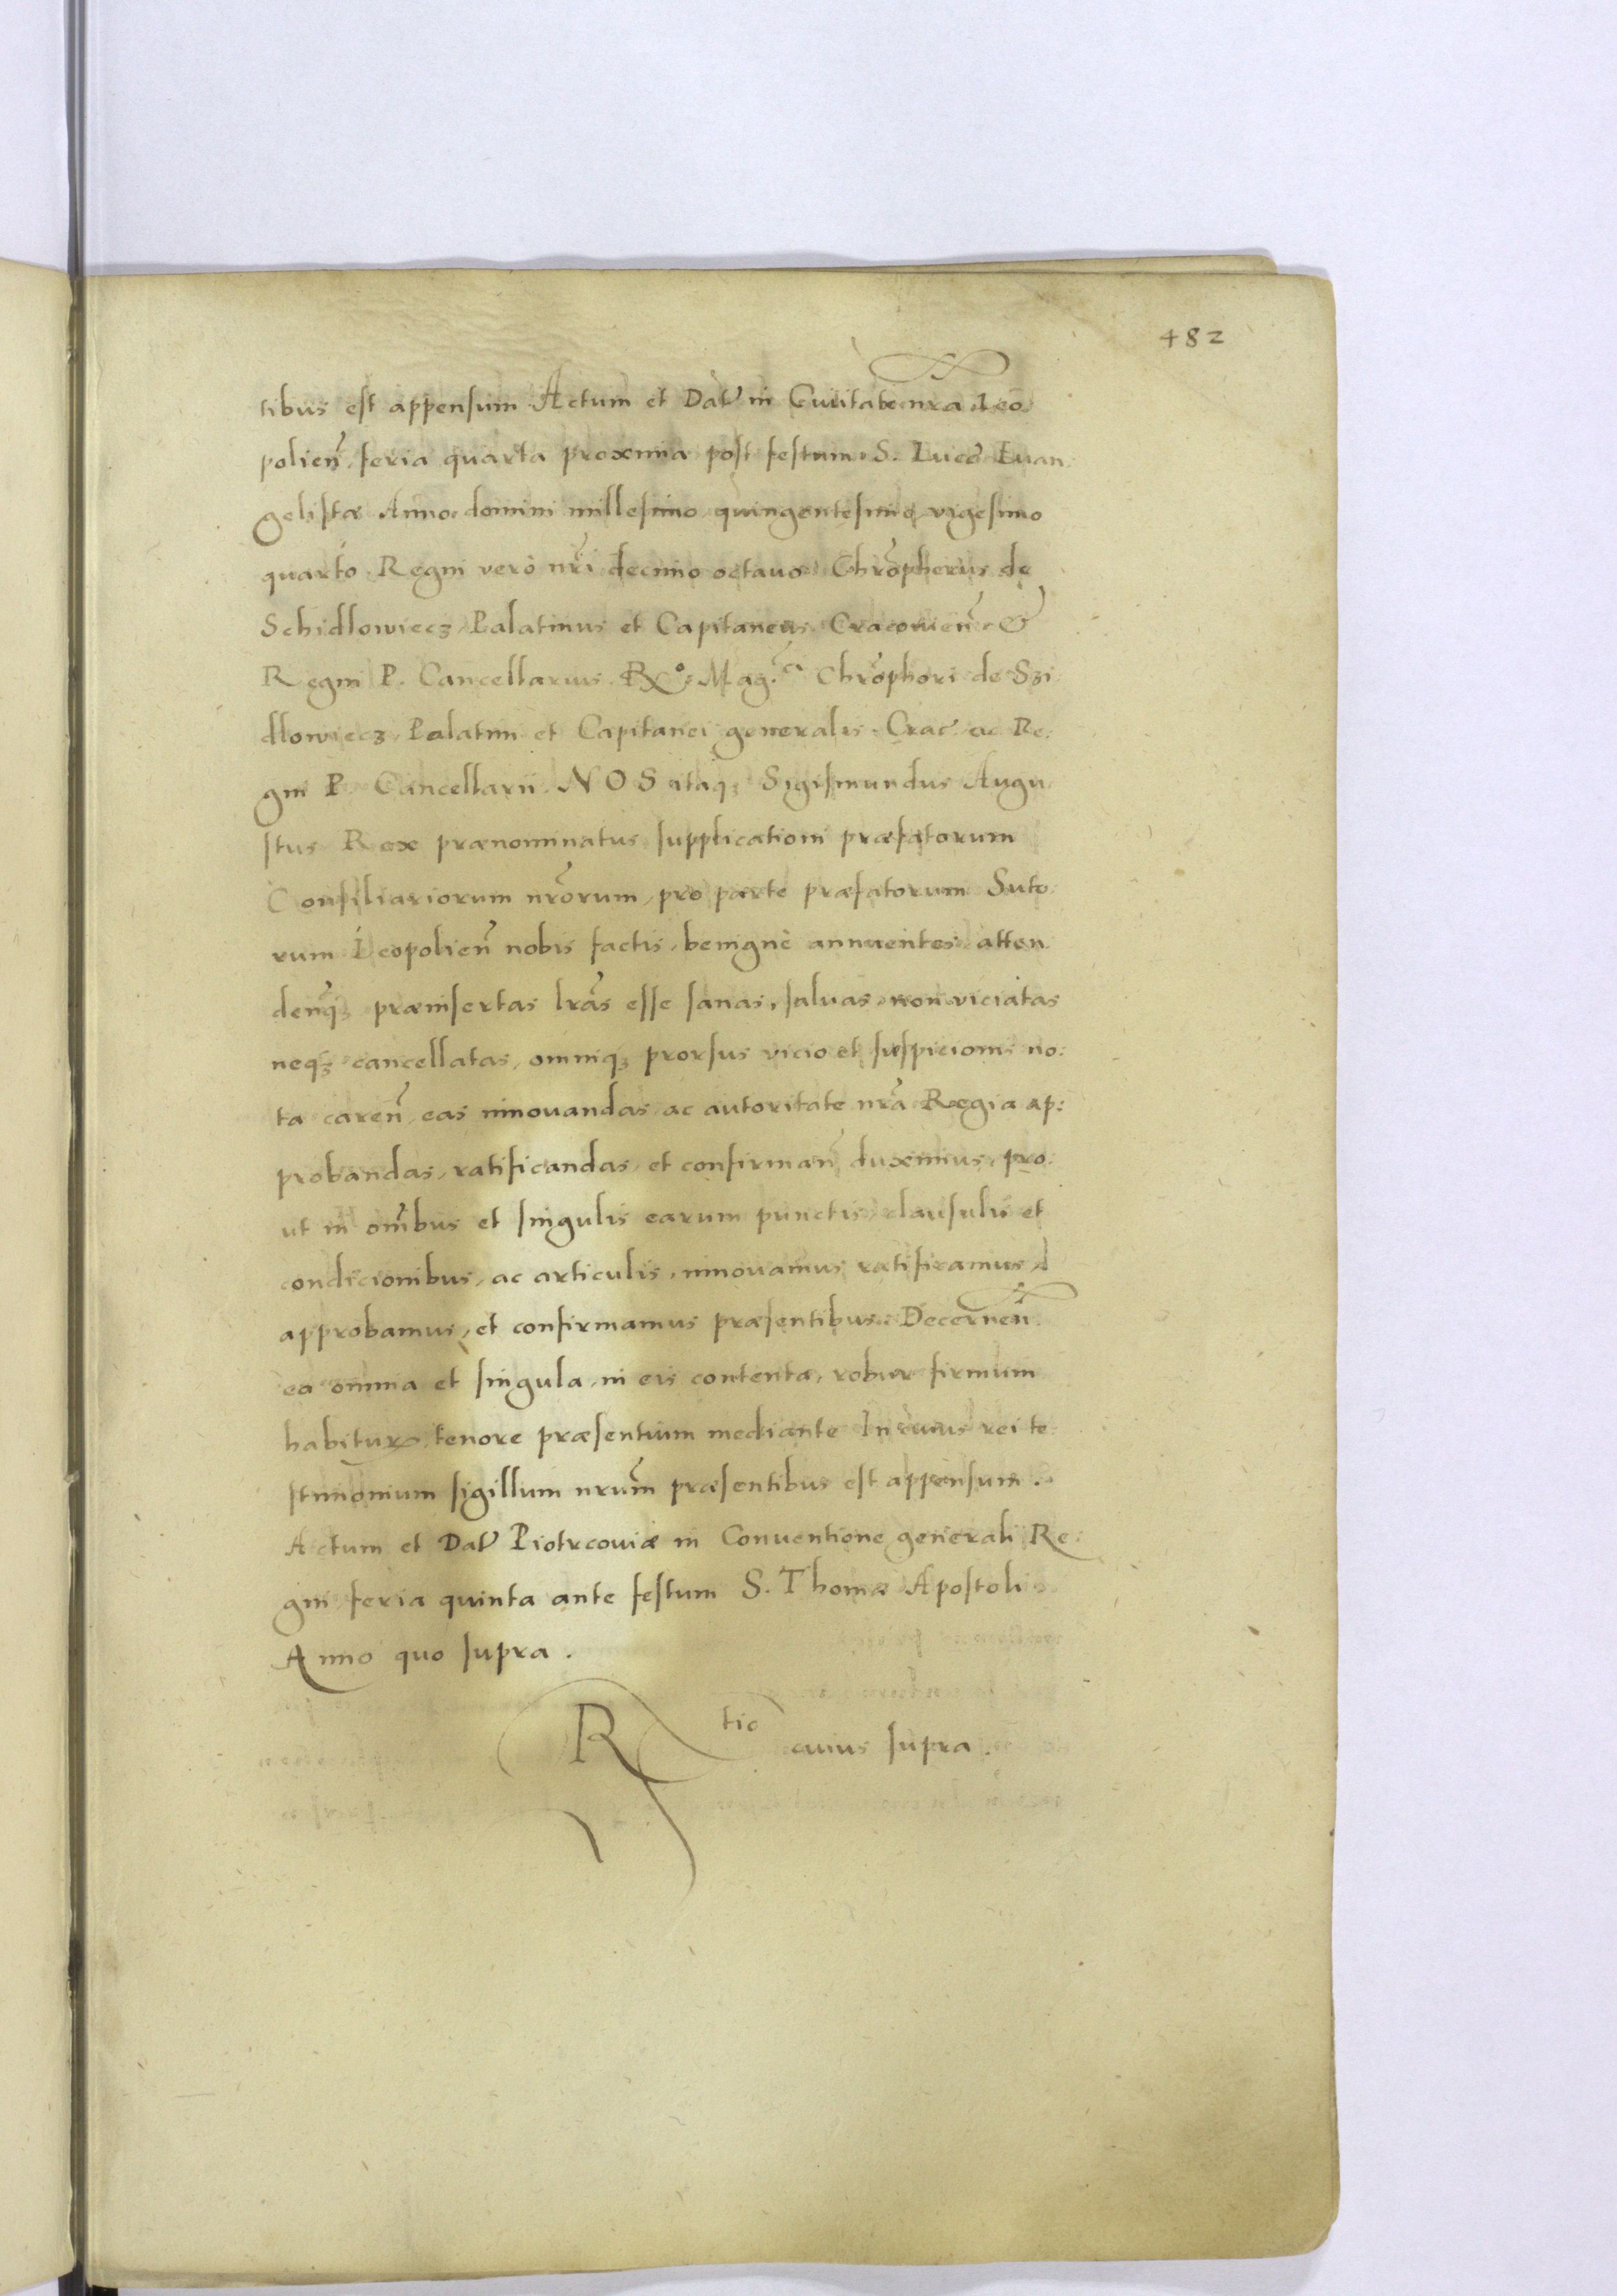 482
tibus est appensum Actum et Dat in Ciuitate nra Leo
polien̄ feria quarta proxima post festum S. Lucæ Euan
gelistæ Anno domini millesimo quingentesimo vigesimo
quarto Regni verò nr̄i decimo octauo Chr̄opherus de
Schidlowiecz Palatinus et Capitaneus Cracouien̄ &
Regni P. Cancellarius. Rº. Mag.ci Chr̄ophori de Szi
dlowiecz, Palatini et Capitanei generalis Crac ac Re:
gni P. Cancellarii. NOS itaq; Sigismundus Augu
stus Rex prænominatus supplicationi præfatorum
Consiliariorum nr̄orum, pro parte præfatorum Suto
rum Leopolien̄ nobis factis, benignè annuentes atten
den̄q; præinsertas lr̄as esse sanas, saluas non viciatas
neq; cancellatas, omniq; prorsus vicio et suspicionis no:
ta caren̄, eas innouandas ac autoritate nr̄a Regia ap:
probandas, ratificandas et confirman̄ duximus, pro:
ut in om̄ibus et singulis earum punctis, clausulis et
condicionibus, ac articulis, innouamus ratificamus,
approbamus, et confirmamus præsentibus. Decernen̄
ea omnia et singula, in eis contenta, robur firmum
habitur, tenore præsentium mediante In cuius rei te
stimonium sigillum nrum̄ præsentibus est appensum.
Actum et Dat Piotrcouiæ in Conuentione generali Re:
gni feria quinta ante festum S. Thomæ Apostoli
Anno quo supra.
Rtio cuius supra.